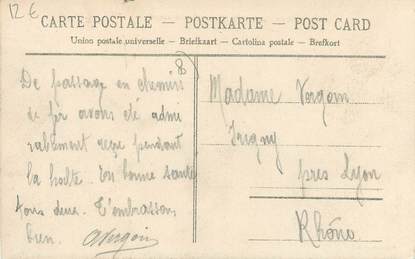 12 €
CARTE POSTALE – POSTKARTE – POST CARD
Union postale universelle – Briefkaart – Cartolina postale – Brefkort
8
De passage en chemin
de fer avons été admi
rablement reçu pendant
la halte. En bonne santé
tous deux. T'embrassons
bien.
Madame Vergoin
Irigny
près Lyon
Rhône